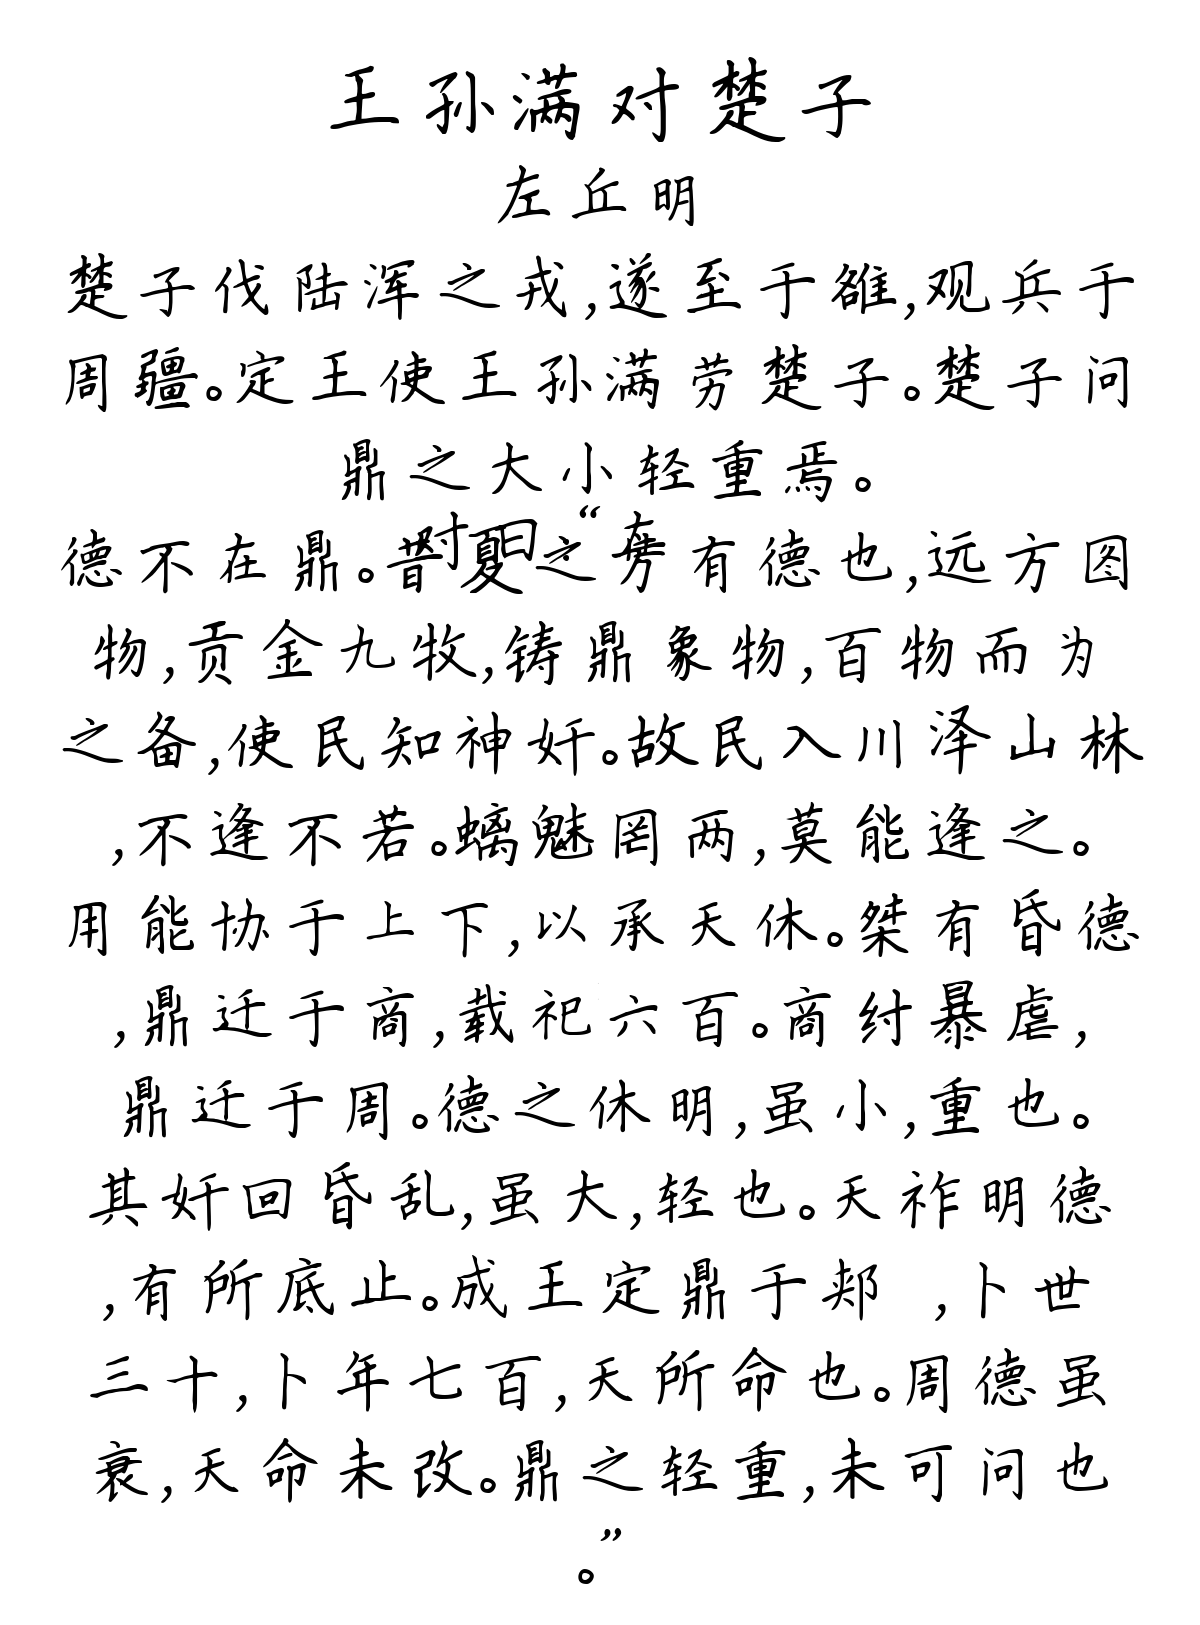 王孙满对楚子
左丘明
楚子伐陆浑之戎,遂至于雒,观兵于
周疆。定王使王孙满劳楚子。楚子问
鼎之大小轻重焉。
对曰“在
德不在鼎。昔夏之方有德也,远方图
物,贡金九牧,铸鼎象物,百物而为
之备,使民知神奸。故民入川泽山林
,不逢不若。螭魅罔两,莫能逢之。
用能协于上下,以承天休。桀有昏德
,鼎迁于商,载祀六百。商纣暴虐,
鼎迁于周。德之休明,虽小,重也。
其奸回昏乱,虽大,轻也。天祚明德
,有所底止。成王定鼎于郏 ,卜世
三十,卜年七百,天所命也。周德虽
衰,天命未改。鼎之轻重,未可问也
”
。